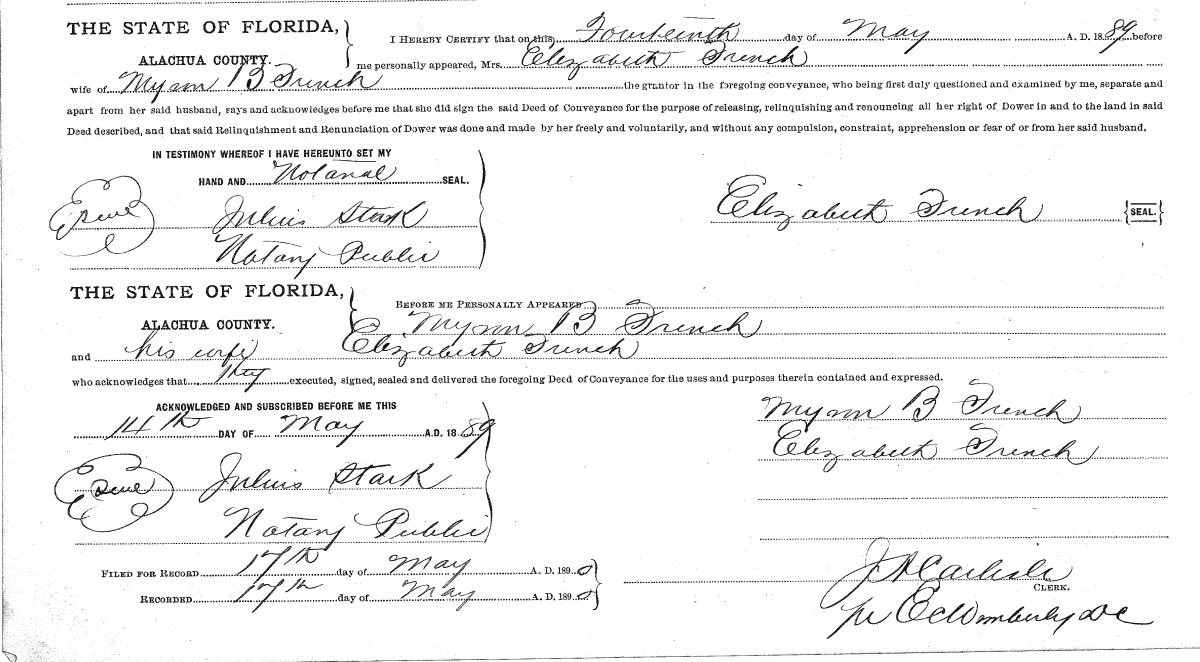 THE STATE OF FLORIDA,
ALACHUA COUNTY.
I HEREBY CERTIFY that on this Fourteenth day of May A. D. 1889 before
me personally appeared, Mrs. Elizabeth French
wife of Myron B French the grantor in the foregoing conveyance, who being first duly questioned and examined by me, separate and
apart from her said husband, says and acknowledges before me that she did sign the said Deed of Conveyance for the purpose of releasing, relinquishing and renouncing all her right of Dower in and to the land in said
Deed described, and that said Relinquishment and Renunciation of Dower was done and made by her freely and voluntarily, and without any compulsion, constraint, apprehension or fear of or from her said husband.
IN TESTIMONY WHEREOF I HAVE HEREUNTO SET MY
HAND AND Notarial SEAL.
Seal
Julius Stark
Notary Public
Elizabeth French {SEAL.}
THE STATE OF FLORIDA,
ALACHUA COUNTY.
BEFORE ME PERSONALLY APPEARED
Myron B French
and his wife Elizabeth French
who acknowledges that they executed, signed, sealed and delivered the foregoing Deed of Conveyance for the uses and purposes therein contained and expressed.
ACKNOWLEDGED AND SUBSCRIBED BEFORE ME THIS
14th DAY OF May A.D. 1889
Seal
Julius Stark
Notary Public
Myron B French
Elizabeth French
FILED FOR RECORD 17th day of May A. D. 1890
RECORDED 17th day of May A. D. 1890
J A Carlisle
CLERK.
pr E C Wimberly DC